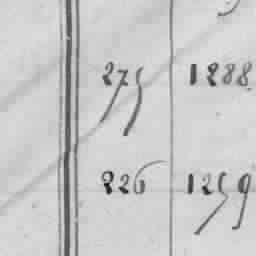 275 1288
226 1259